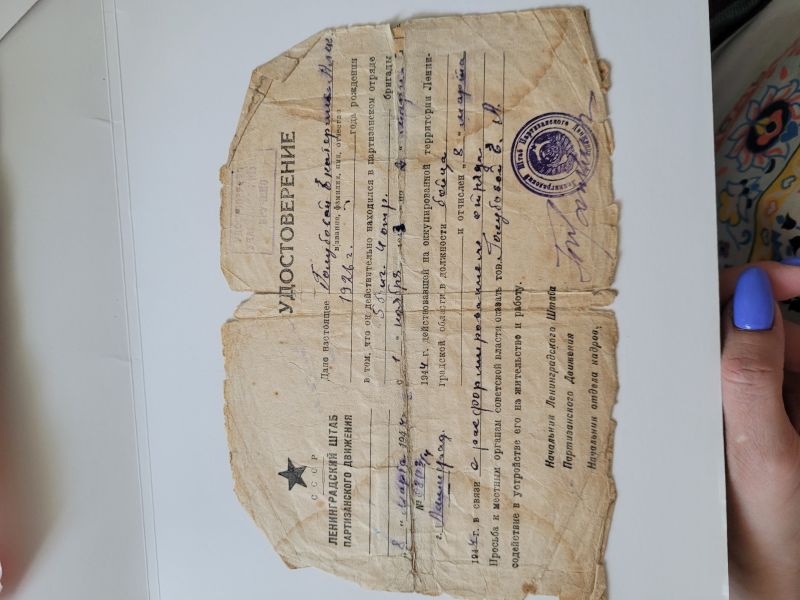 СССР
ЛЕНИНГРАДСКИЙ ШТАБ
ПАРТИЗАНСКОГО ДВИЖЕНИЯ
„8 " марта 1944 г.
№
г. Ленинград.
УДОСТОВЕРЕНИЕ
Дано настоящее Голубовой Екатерине
звание, фамилия, имя, отчество
1926 г. года рождения
в том, что он действительно находился в партизанском отряде
5 бриг. 4 отр. бригады
" 1 " ноября 1943 по " 8 " марта
1944 г. действовавшей на оккупированной территории Ленин-
градской области в должности бойца
и отчислен „ 8 " марта
1944 г. в связи с расформированием отряда.
Просьба к местным органам советской власти оказать тов. Голубовой Е. И.
содействие в устройстве его на жительство и работу.
Начальник Ленинградского Штаба
Партизанского Движения
Начальник отдела кадров,
Ленинградский Штаб Партизанского Движения